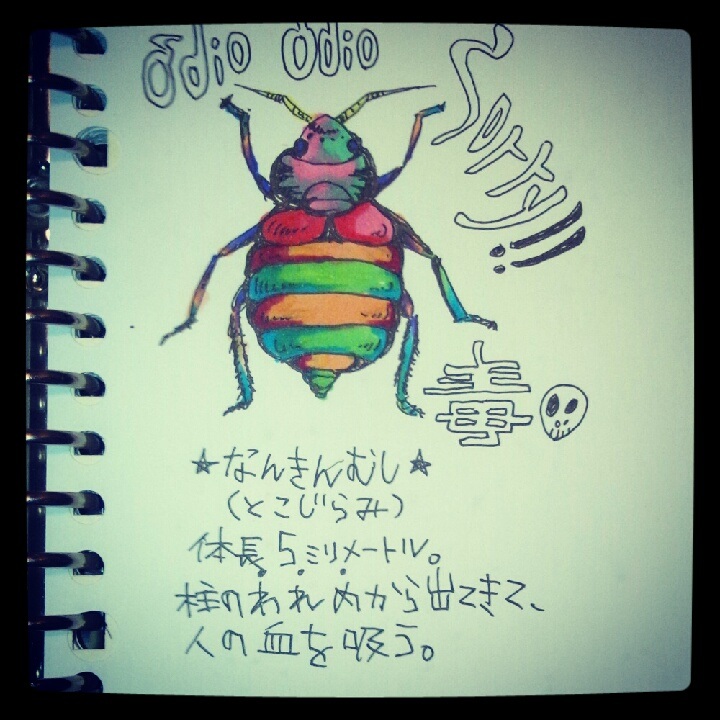 odio odio
Sorry!!
毒
★なんきんむし★
(とこじらみ)
体長5ミリメートル。
柱のわれめから出てきて、
人の血を吸う。